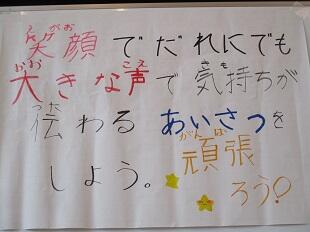 笑顔でだれにでも
大きな声で気持ちが
伝わるあいさつを
しよう。
頑張
ろう!
えがお
おお
こえ
きも
つた
がんば